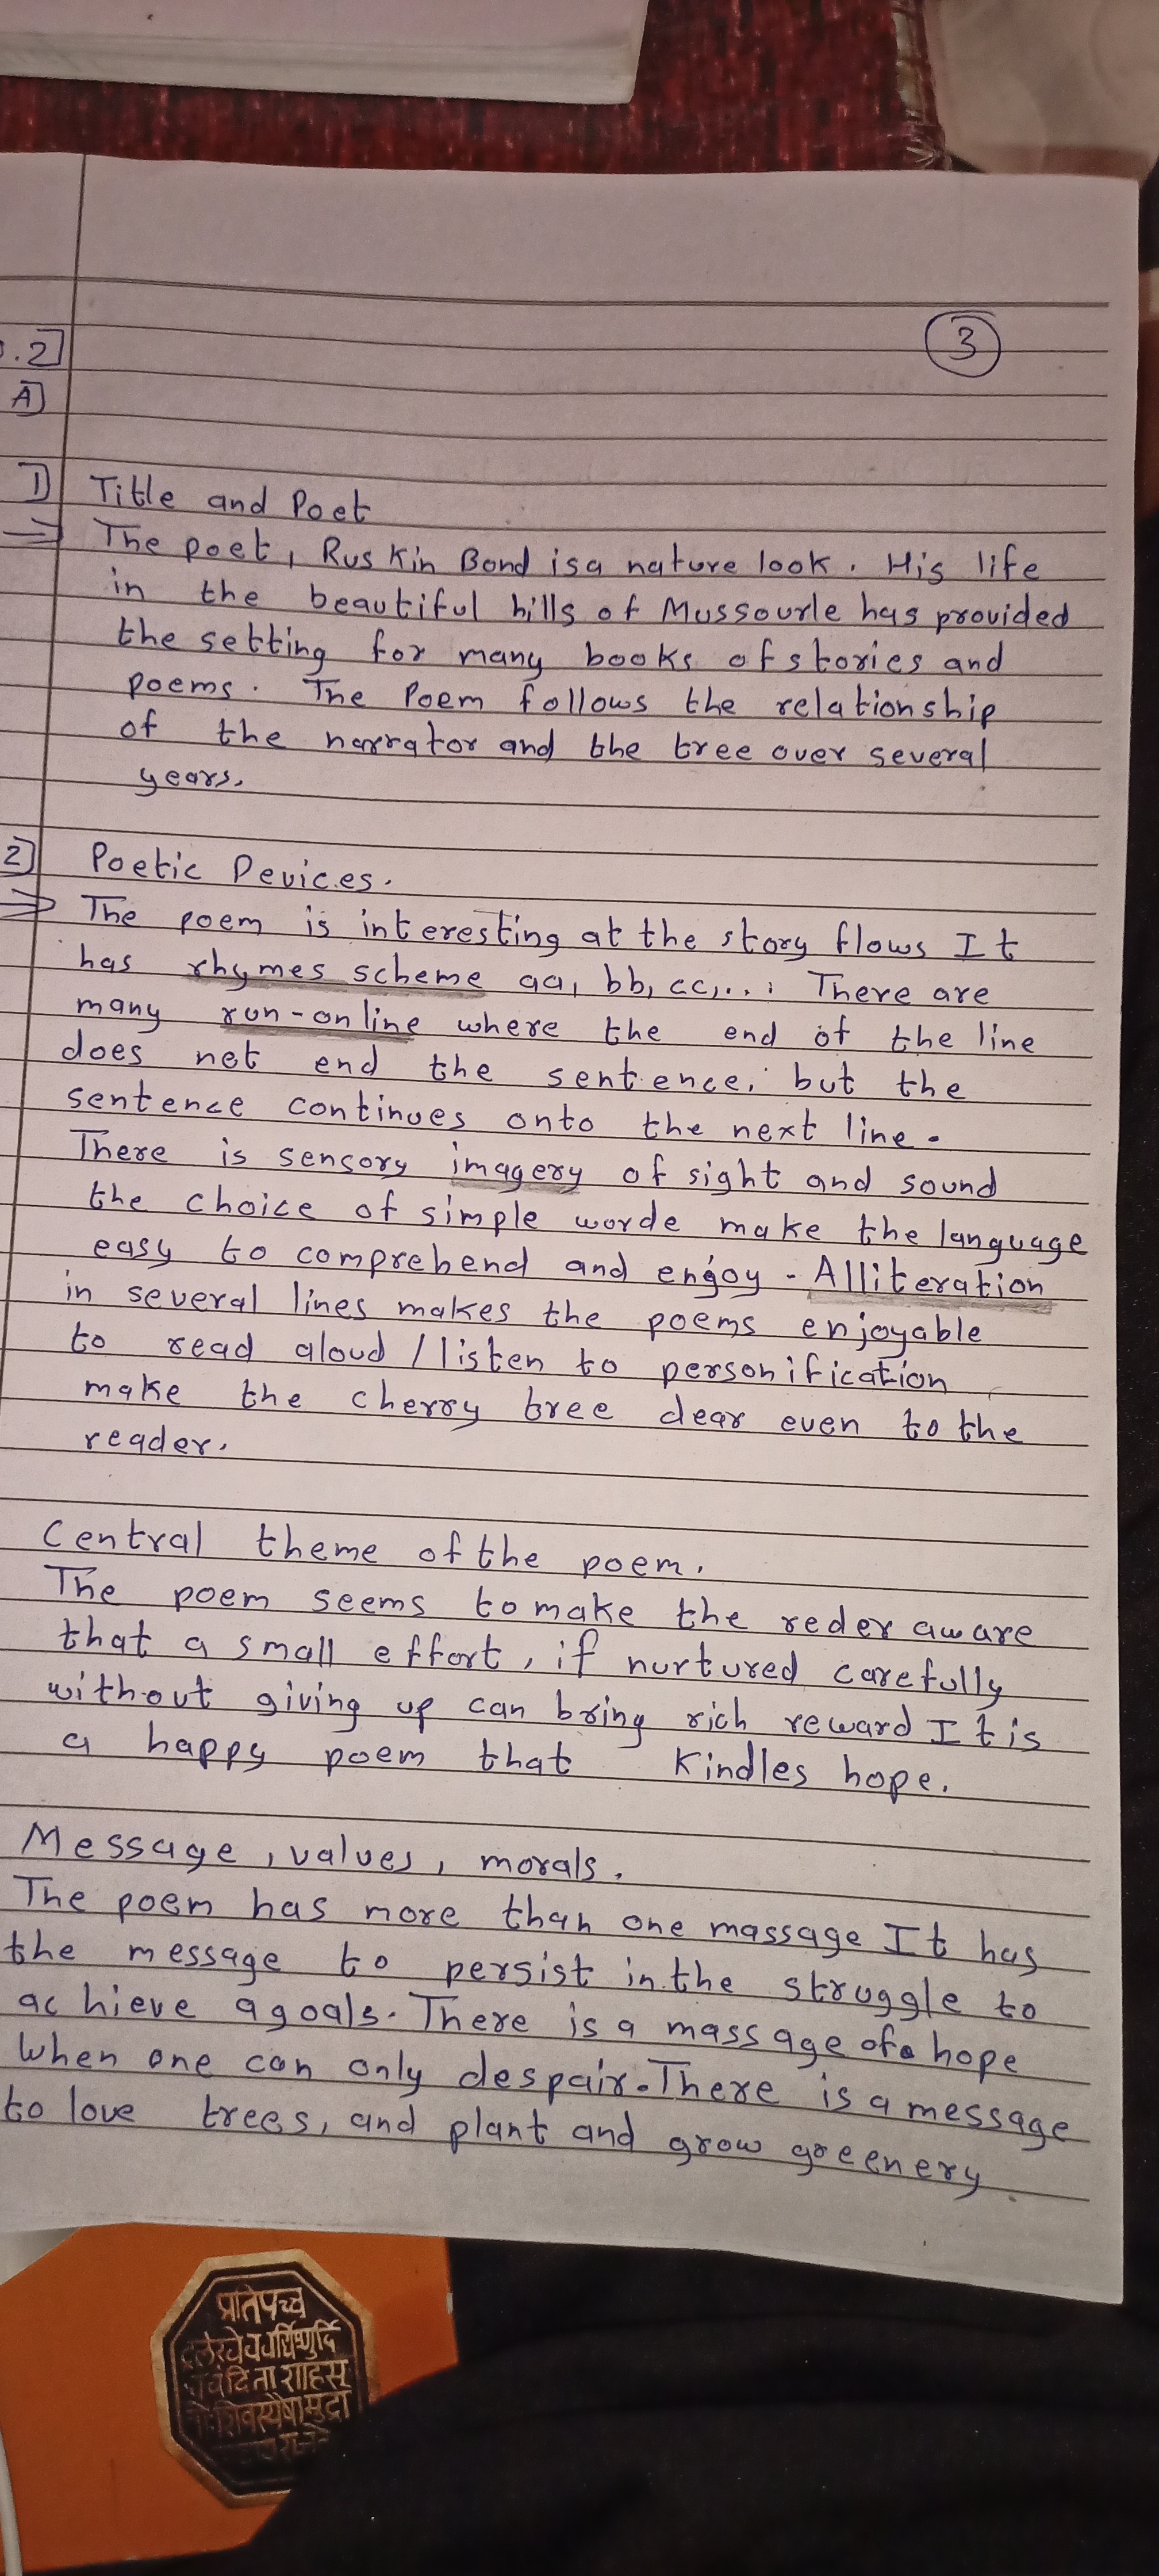 3
.2]
A]
1] Title and Poet
⇒ The poet, Ruskin Bond is a nature look. His life
in the beautiful hills of Mussourle has provided
the setting for many books of stories and
poems. The Poem follows the relationship
of the narrator and the tree over several
years.
2] Poetic Devices.
⇒ The poem is interesting at the story flows It
has rhymes scheme aa, bb, cc,... There are
many run-on line where the end of the line
does not end the sentence, but the
sentence continues onto the next line.
There is sensory imagery of sight and sound
the choice of simple worde make the language
easy to comprehend and engoy - Alliteration
in several lines makes the poems enjoyable
to read aloud / listen to personification
make the cherry tree dear even to the
reader.
Central theme of the poem.
The poem seems to make the reder aware
that a small effort, if nurtured carefully
without giving up can bring rich reward It is
a happy poem that kindles hope.
Message, values, morals.
The poem has more than one massage It has
the message to persist in the struggle to
achieve a goals. There is a massage of a hope
when one can only despair. There is a message
to love trees, and plant and grow greenery.
प्रतिपच्च
वर्धिष्णुर्वि